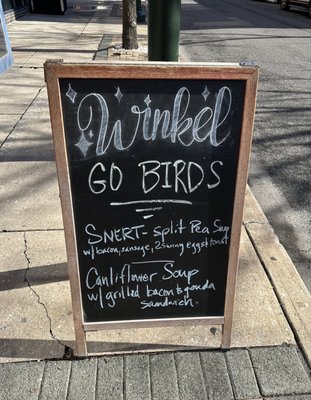 Winkel
GO BIRDS
SNERT - Split Pea Soup
w/ bacon, sausage, 2 sunny eggs & toast
Cauliflower Soup
w/ grilled bacon & gouda
sandwich.